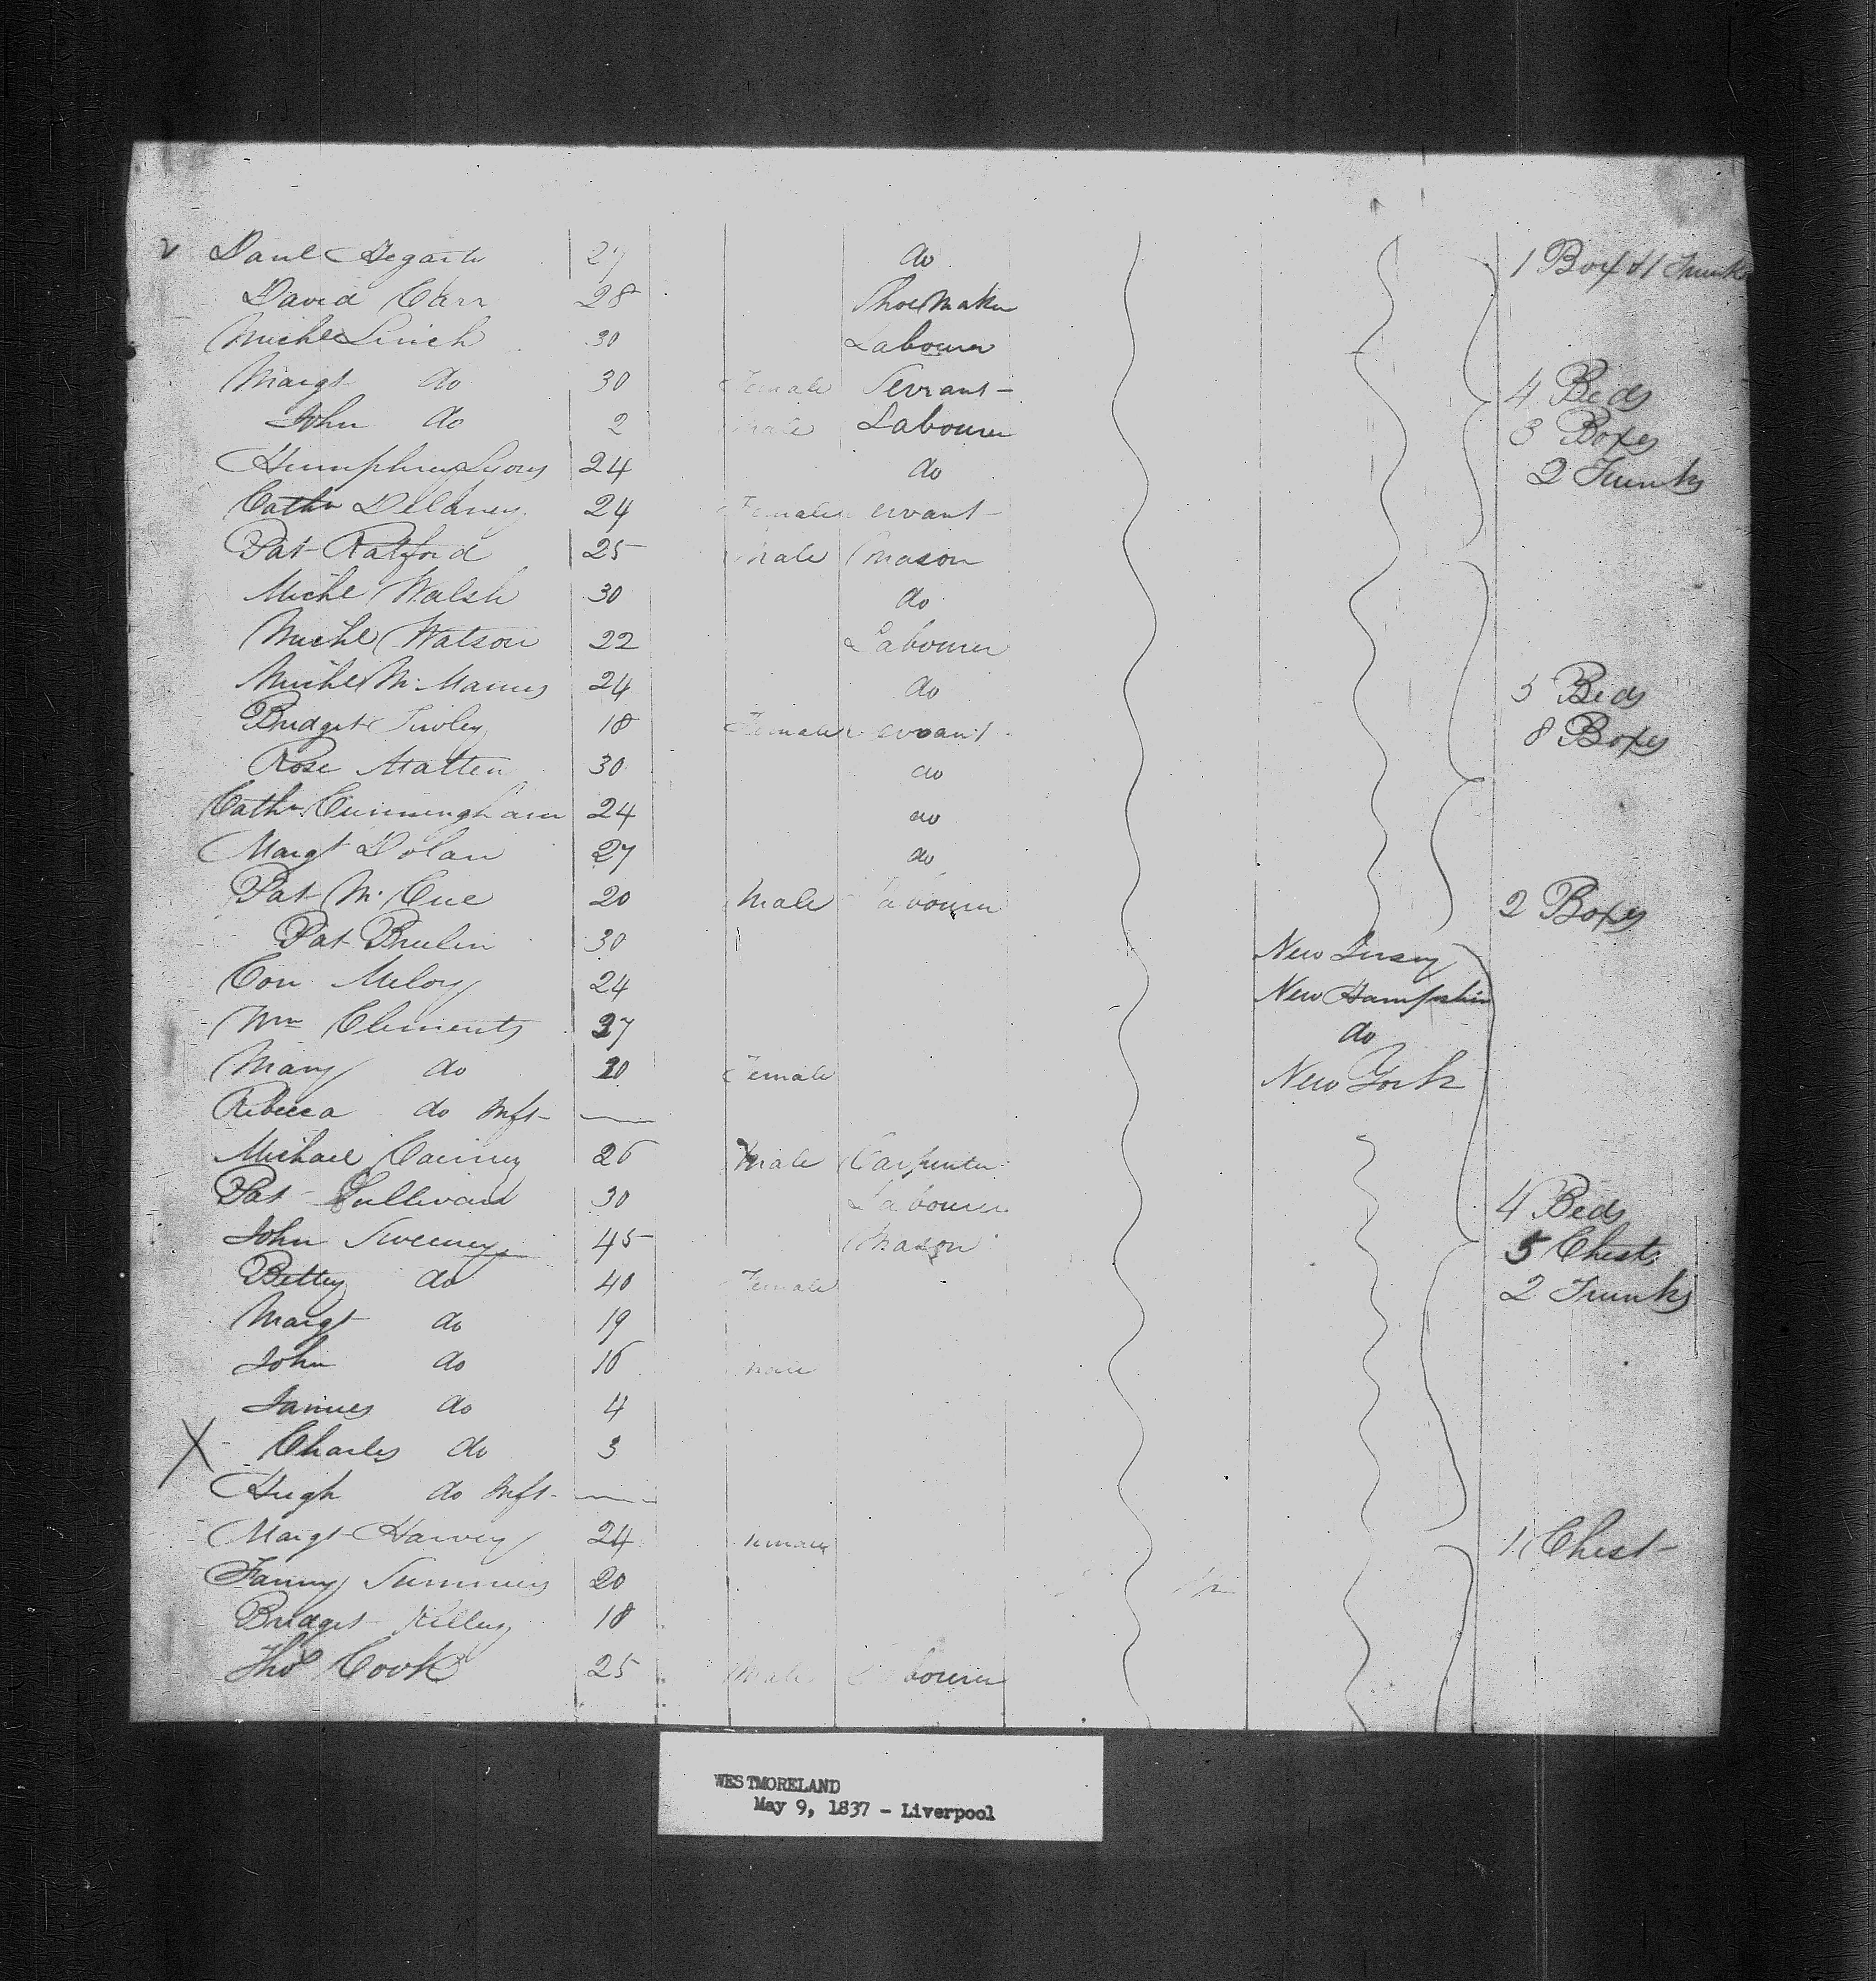 Danl Hegarty 27 do 1 Box & 1 Trunk
David Carr 28 Shoe Maker
Michl Linch 30 Labourer
Margt do 30 Female Servant 4 Beds
John do 2 Male Labourer 3 Boxes
Humphrey Lyons 24 do 2 Trunks
Cathn Delaney 24 Female ervant
Pat Ratford 25 Male Mason
Michl Walsh 30 do
Michl Watson 22 Labourer
Michl McManus 24 do 5 Beds
Bridget 18 Female ervant 8 Boxes
Rose 30 do
Cathn Cunningham 24 do
Margt Dolan 27 do
Pat McCue 20 Male Labourer 2 Boxes
Pat 30 New Jersey
Con Meloy 24 New Hampshire
Wm Clements 37 do
Mary do 20 Female New York
Rebecca do Inft —
Michael 26 Male Carpenter
Pat Sullivan 30 Labourer 4 Beds
John Sweeney 45 Mason 5 Chests
Bettey do 40 Female 2 Trunks
Margt do 19
John do 16 Male
James do 4
X Charles do 3
Hugh do Inft —
Margt Harvey 24 Female 1 Chest
Fanny Summers 20
Bridget Killey 18
Thos Cook 25 Male Labourer
WESTMORELAND
May 9, 1837 - Liverpool